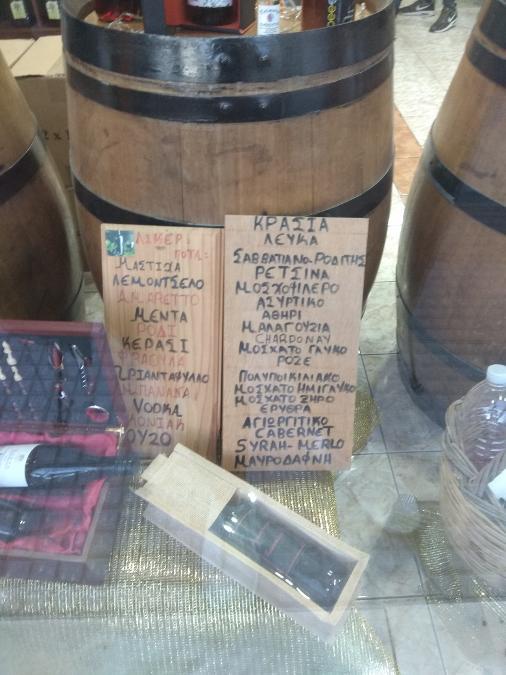 ΛΙΚΕΡ:
ΠΟΤΑ:
ΜΑΣΤΙΧΑ
ΛΕΜΟΝΤΣΕΛΟ
ΑΜΑΡΕΤΤΟ
ΜΕΝΤΑ
ΡΟΔΙ
ΚΕΡΑΣΙ
ΦΡΑΟΥΛΑ
ΤΡΙΑΝΤΑΦΥΛΛΟ
ΜΠΑΝΑΝΑ
VODKA
ΚΟΝΙΑΚ
ΟΥΖΟ
ΚΡΑΣΙΑ
ΛΕΥΚΑ
ΣΑΒΒΑΤΙΑΝΟ-ΡΟΔΙΤΗΣ
ΡΕΤΣΙΝΑ
ΜΟΣΧΟΦΙΛΕΡΟ
ΑΣΥΡΤΙΚΟ
ΑΘΗΡΙ
ΜΑΛΑΓΟΥΖΙΑ
CHARDONAY
ΜΟΣΧΑΤΟ ΓΛΥΚΟ
ΡΟΖΕ
ΠΟΛΥΠΟΙΚΙΛΙΑΚΟ
ΜΟΣΧΑΤΟ ΗΜΙΓΛΥΚΟ
ΜΟΣΧΑΤΟ ΞΗΡΟ
ΕΡΥΘΡΑ
ΑΓΙΩΡΓΙΤΙΚΟ
CABERNET
SYRAH-MERLO
ΜΑΥΡΟΔΑΦΝΗ